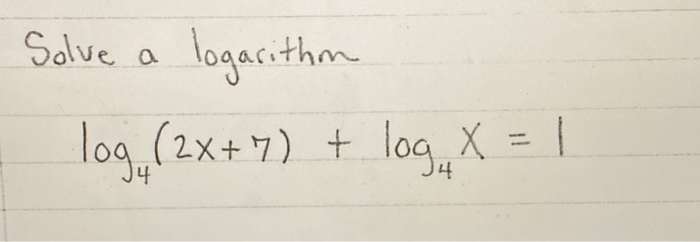 Solve a logarithm
log₄(2x+7) + log₄ x = 1